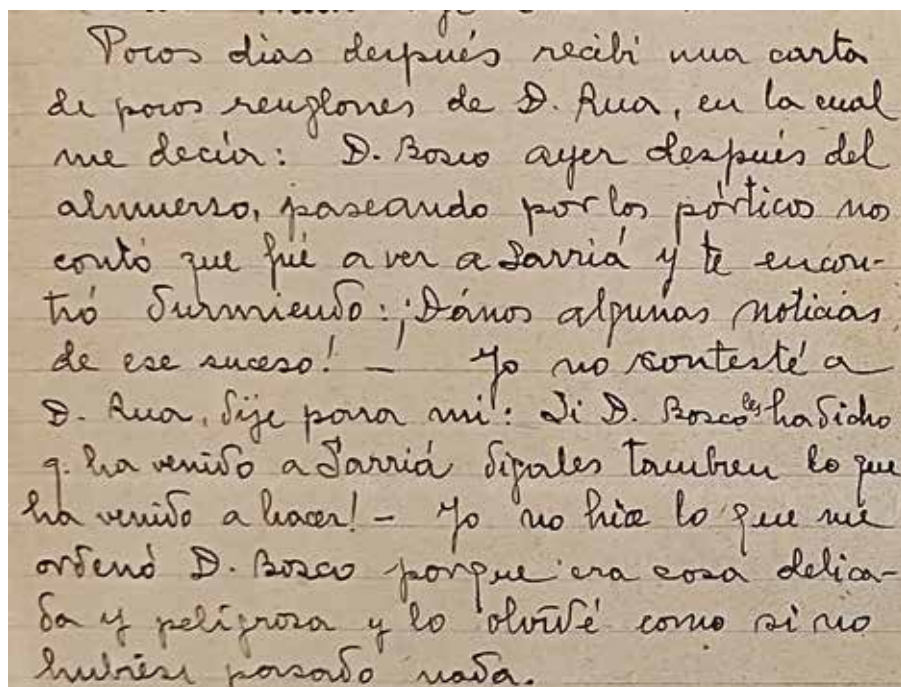 Pocos dias después recibi una carta
de pocos renglones de D. Rua, en la cual
me decía: D. Bosco ayer después del
almuerso, paseando por los pórticos nos
contó que fué a ver a Sarriá y te encon-
tró durmiendo: ¡Dános algunas noticias
de ese suceso! — Yo no contesté a
D. Rua, dije para mi: Si D. Bosco les ha dicho
q. ha venido a Sarriá digales tambien lo que
ha venido a hacer! — Yo no hice lo que me
ordenó D. Bosco porque era cosa delica-
da y peligrosa y lo olvidé como si no
hubiese pasado nada.